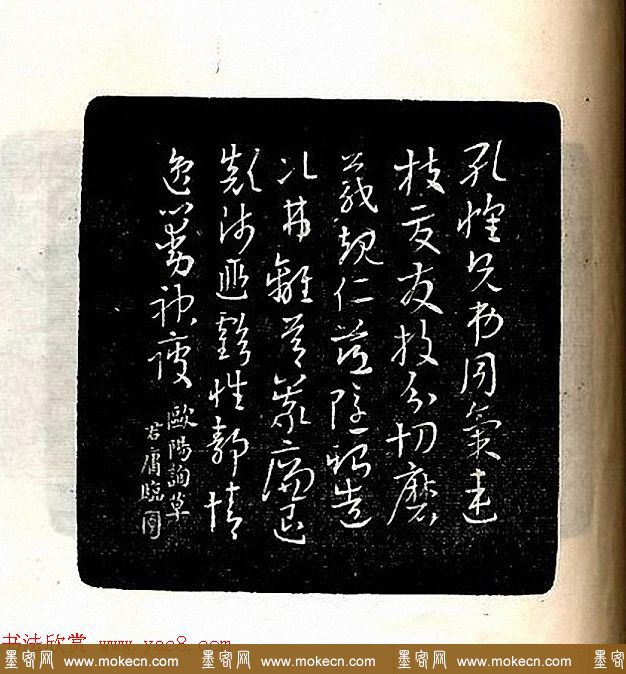 孔懷兄弟同氣連
枝交友投分切磨
箴規仁慈隱惻造
次弗離節義廉退
顛沛匪虧性靜情
逸心動神疲
歐陽詢草
君庸臨
书法欣赏 www.yac8.com
墨客网 www.mokecn.com 墨客网 www.mokecn.com 墨客网 www.mokecn.com